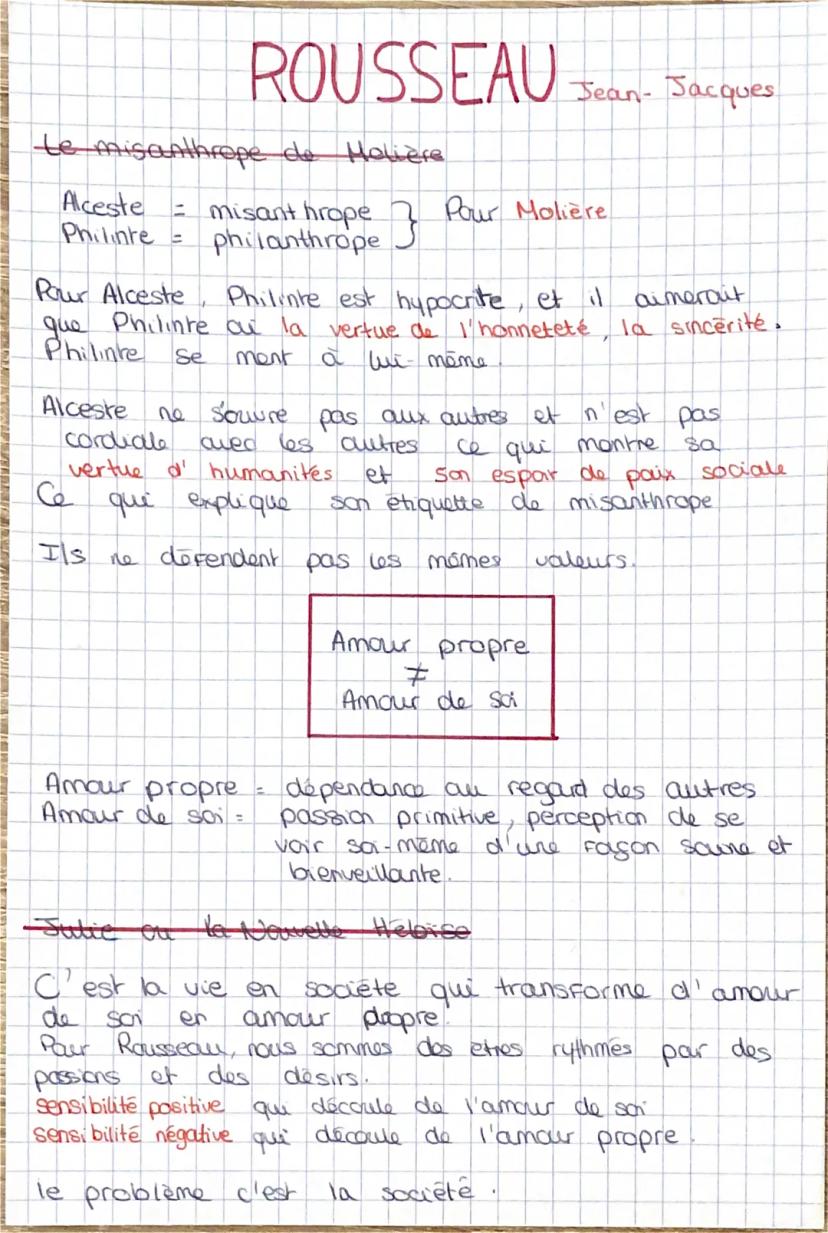 ROUSSEAU Jean-Jacques
Le misanthrope de Molière
Alceste = misanthrope } Pour Molière
Philinte = philanthrope
Pour Alceste, Philinte est hypocrite, et il aimerait
que Philinte ai la vertue de l'honneteté, la sincérité.
Philinte se ment à lui-même.
Alceste ne s'ouvre pas aux autres et n'est pas
cordiale avec les autres ce qui montre sa
vertue d'humanités et son espoir de paix sociale
Ce qui explique son étiquette de misanthrope
Ils ne défendent pas les mêmes valeurs.
Amour propre
≠
Amour de soi
Amour propre = dépendance au regard des autres
Amour de soi = passion primitive, perception de se
voir soi-même d'une façon saine et
bienveillante.
Julie ou la Nouvelle Héloïse
C'est la vie en société qui transforme d'amour
de soi en amour propre.
Pour Rousseau, nous sommes des etres rythmés par des
passions et des désirs.
sensibilité positive qui découle de l'amour de soi
sensibilité négative qui découle de l'amour propre.
le problème c'est la société.